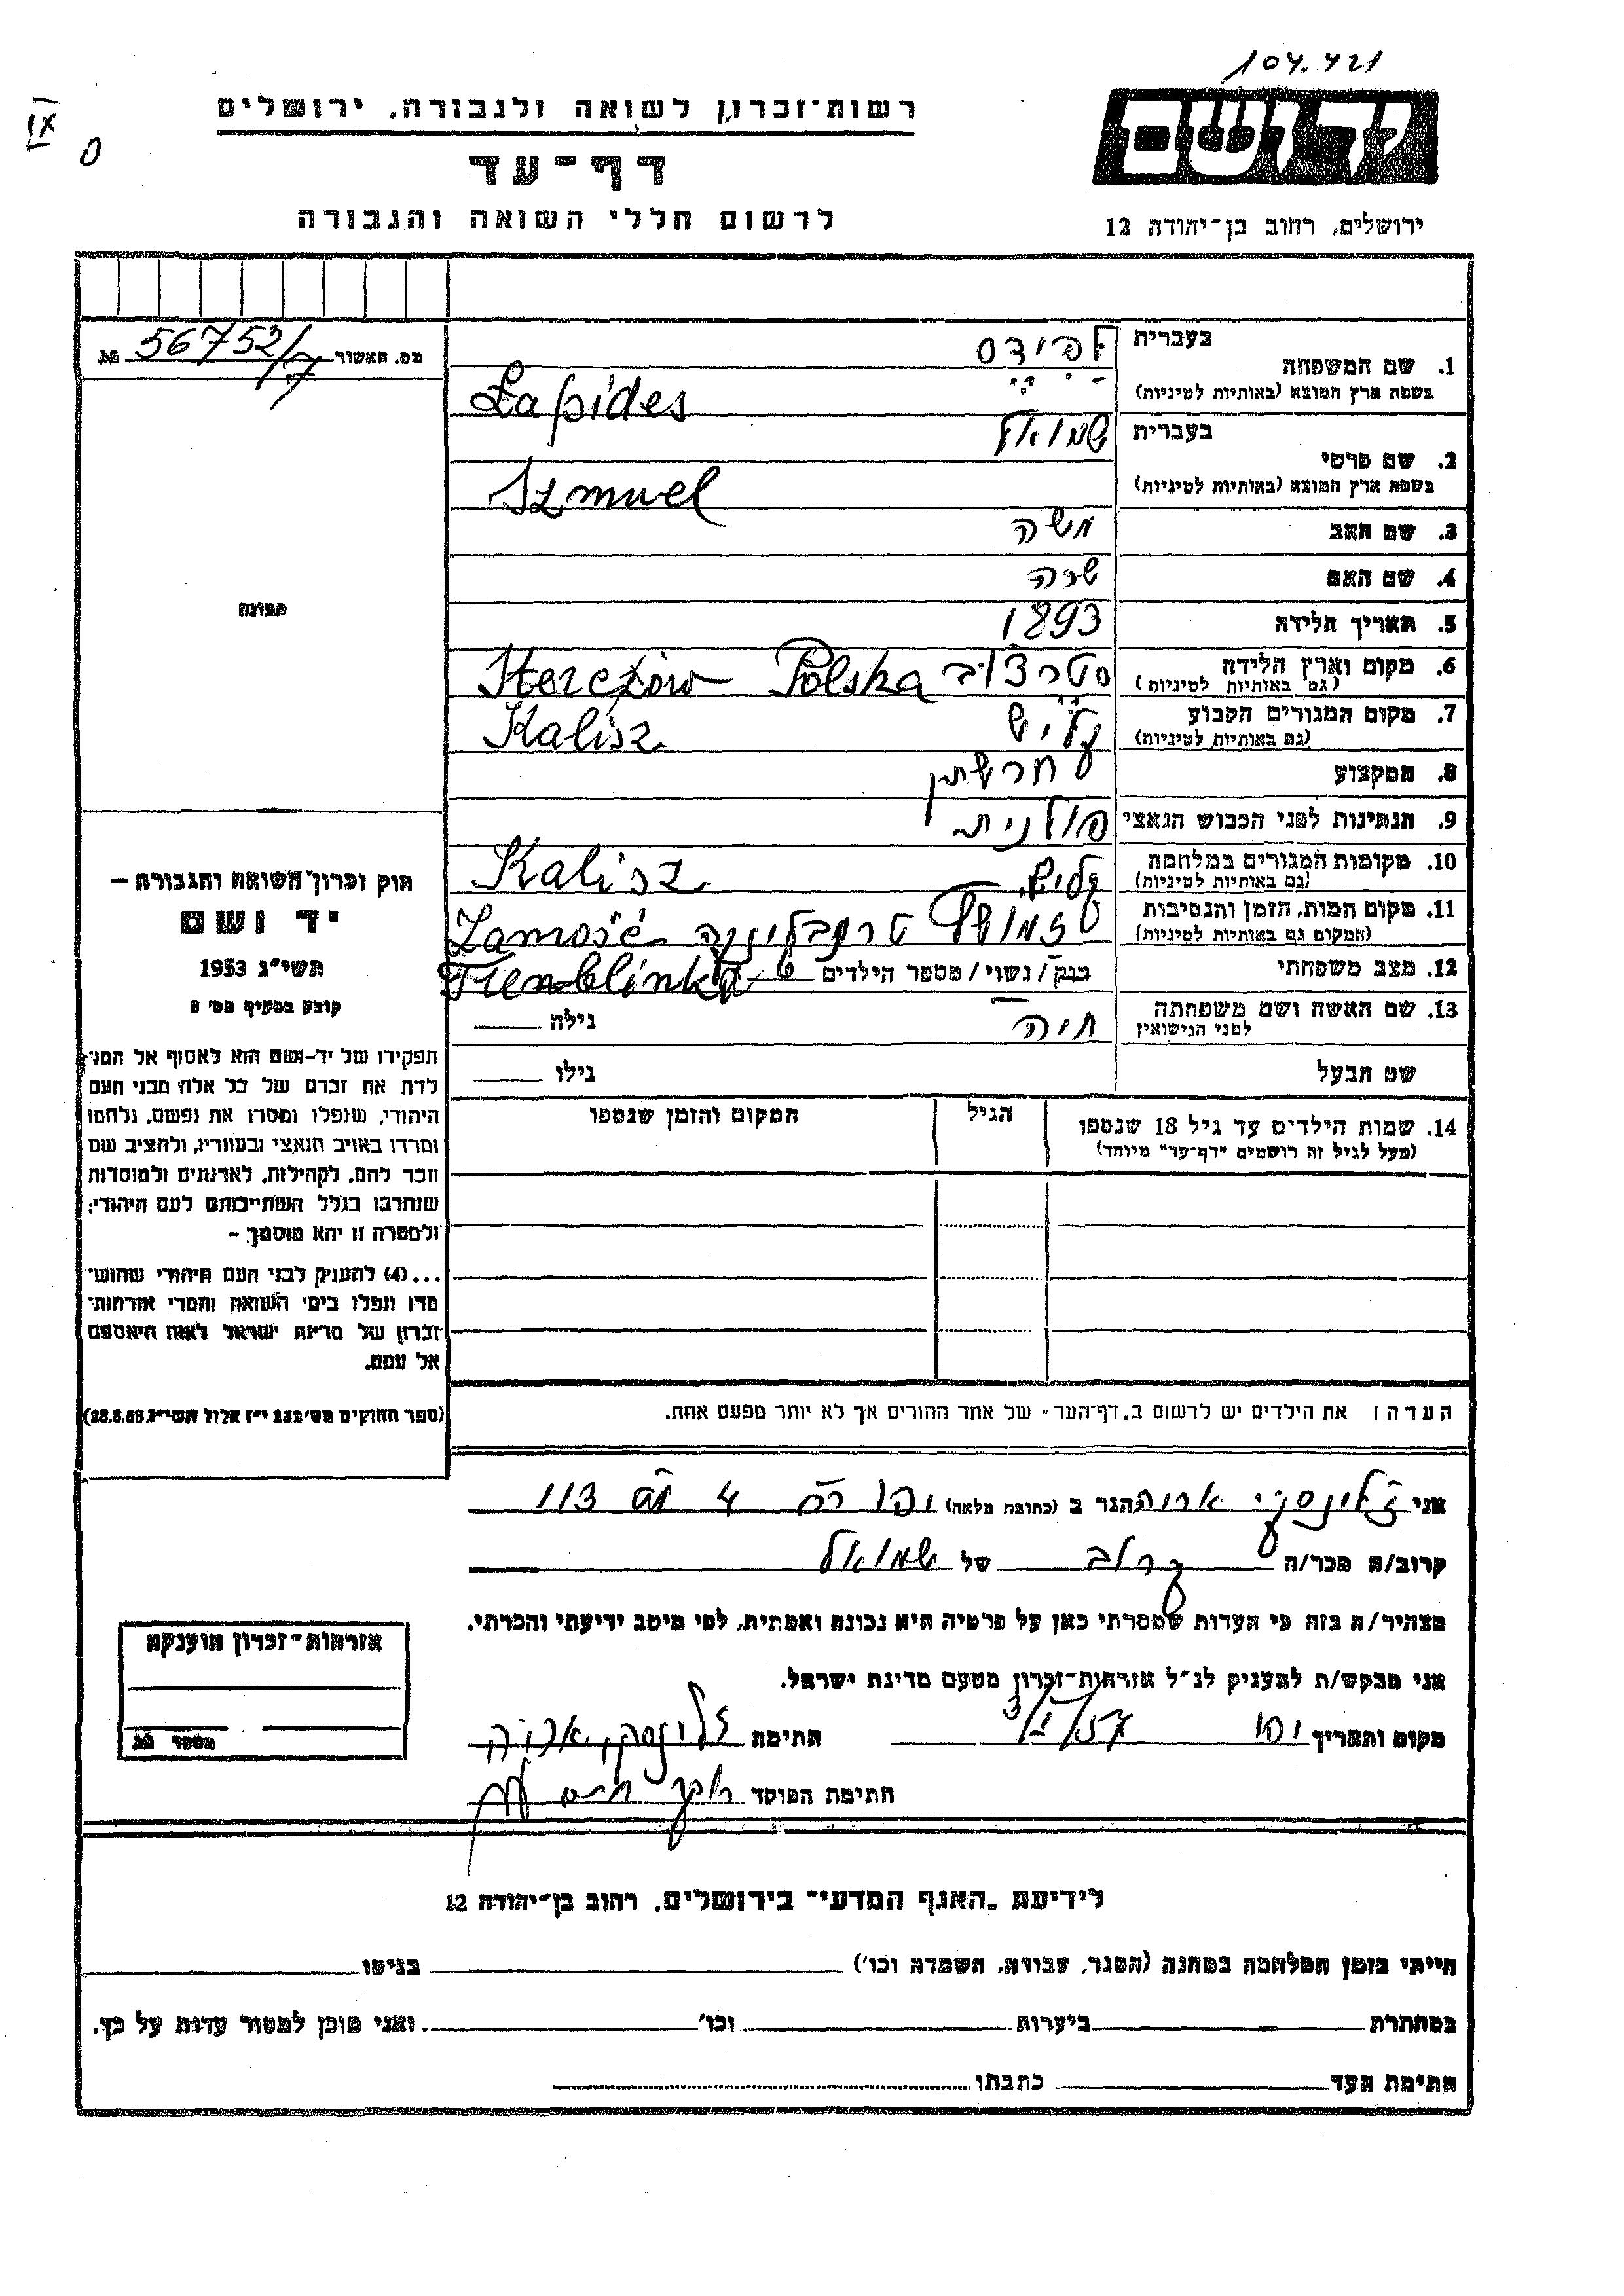 104.421
רשות-זכרון לשואה ולגבורה, ירושלים
יד ושם
דף-עד
לרשום חללי השואה והגבורה
ירושלים, רחוב בן-יהודה 12
מס. האשור 56752/7 №
1. שם המשפחה בעברית לפידס
בשפת ארץ המוצא (באותיות לטיניות) Lapides
2. שם פרטי בעברית שמואל
בשפת ארץ המוצא (באותיות לטיניות) Szmuel
3. שם האב משה
4. שם האם שרה
5. תאריך הלידה 1893
6. מקום וארץ הלידה
(גם באותיות לטיניות) Sterczów Polska
7. מקום המגורים הקבוע קליש
(גם באותיות לטיניות) Kalisz
8. המקצוע חרשתן
9. הנתינות לפני הכבוש הנאצי פולנית
10. מקומות המגורים במלחמה קליש
(גם באותיות לטיניות) Kalisz
11. מקום המות, הזמן והנסיבות טרמבלינקה Zamość
(המקום גם באותיות לטיניות)
12. מצב משפחתי רוק/נשוי/מספר הילדים Tremblinka
13. שם האשה ושם משפחתה חיה גילה
לפני הנישואין
שם הבעל גילו
14. שמות הילדים עד גיל 18 שנספו הגיל המקום והזמן שנספו
(מעל לגיל זה רושמים "דף-עד" מיוחד)
הערה: את הילדים יש לרשום ב„דף-העד" של אחד ההורים אך לא יותר מפעם אחת.
תמונה
חוק זכרון השואה והגבורה —
יד ושם
תשי"ג 1953
קובע בסעיף מס'
תפקידו של יד-ושם הוא לאסוף אל המו־
לדת את זכרם של כל אלה מבני העם
היהודי, שנפלו ומסרו את נפשם, נלחמו
ומרדו באויב הנאצי ובעוזריו, ולהציב שם
וזכר להם, לקהילות, לארגונים ולמוסדות
שנחרבו בגלל השתייכותם לעם היהודי;
ולמטרה זו יהא מוסמך –
...(4) להעניק לבני העם היהודי שהוש־
מדו ונפלו בימי השואה והמרי אזרחות־
זכרון של מדינת ישראל לאות היאספם
אל עמם.
(ספר החוקים מס' 132 י"ז אלול תשי"ג 28.8.53)
אני ז'לינסקי אריה הגר ב (כתובת מלאה) יפו 4 113
קרוב/ה מכר/ה קרוב של שמואל
מצהיר/ה בזה כי העדות שמסרתי כאן על פרטיה היא נכונה ואמתית, לפי מיטב ידיעתי והכרתי.
אני מבקש/ת להעניק לנ"ל אזרחות-זכרון מטעם מדינת ישראל.
מקום ותאריך יפו 3/I/57 חתימה ז'לינסקי אריה
חתימת הפוקד
אזרחות-זכרון הוענקה
מספר №
לידיעת „האגף המדעי" בירושלים, רחוב בן-יהודה 12
הייתי בזמן המלחמה במחנה (הסגר, עבודה, השמדה וכו') בגיטו
במחתרת ביערות וכו' ואני מוכן למסור עדות על כך.
חתימת העד כתבתו